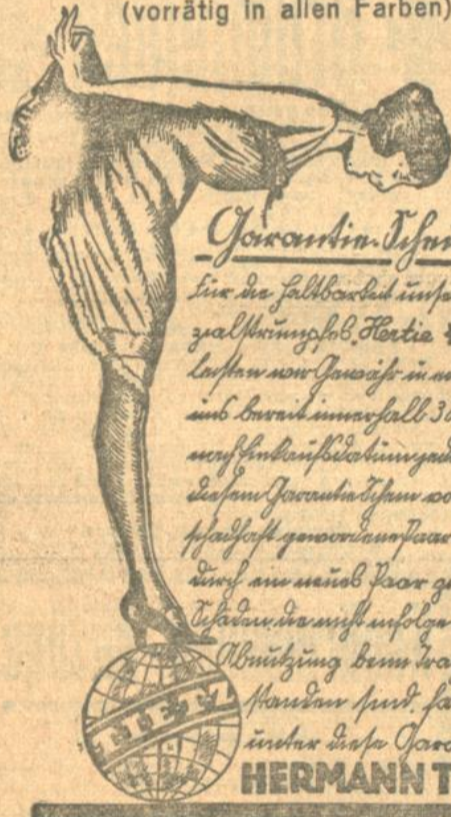 (vorrätig in allen Farben)
Garantie-Schei
Für die Haltbarkeit unse
zialstrumpfes „Hertie
leisten wir Gewähr in
uns bereit innerhalb 30
nach Einkaufsdatum jed
diesem Garantie Schein vo
schadhaft gewordene Paar
durch ein neues Paar
Schäden, die nicht infolge
Abnützung beim Tra
standen sind, fa
unter diese Gara
TIETZ
HERMANN T